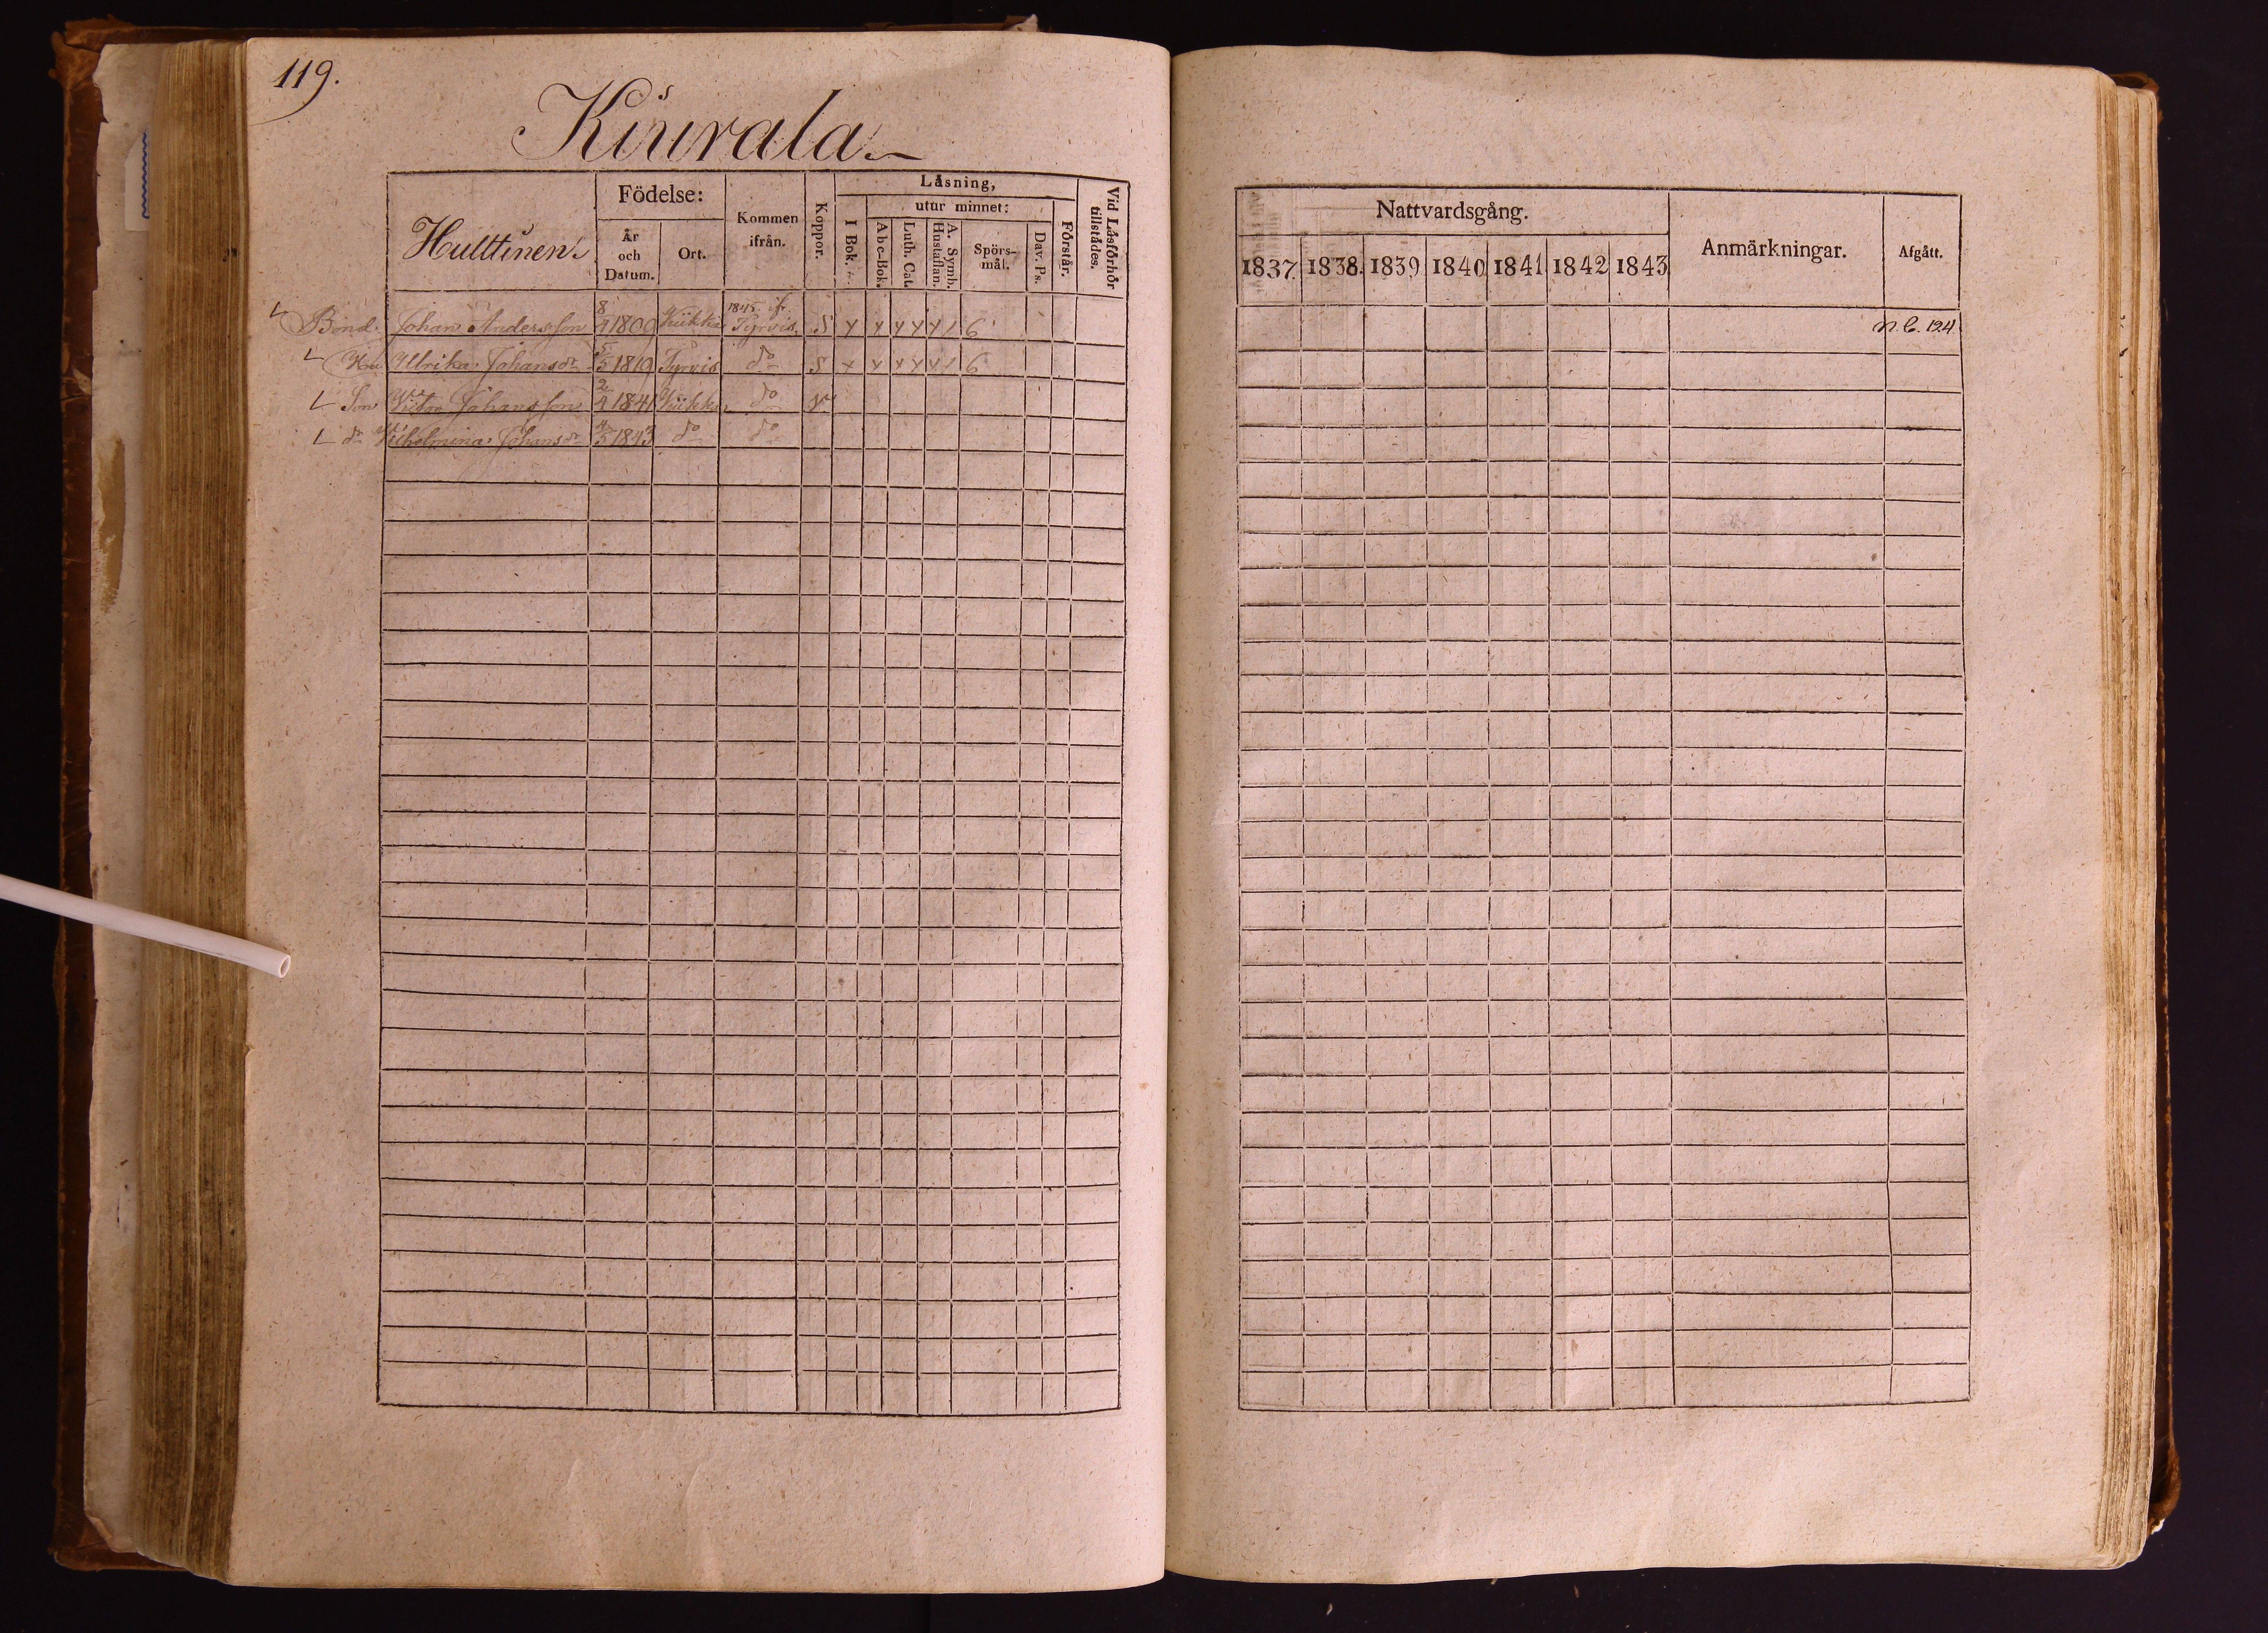 119.
Kiurala
Hulttinen.
Födelse:
År och Datum.
Ort.
Kommen ifrån.
Koppor.
Låsning,
I Bok.
utur minnet:
Abc-Bok.
Luth. Cat.
A. Symb. Hustaflan.
Spörs-mål.
Dav. Ps.
Förstår.
Vid Läsförhör tillstådes.
Bond. Johan Andersson 8/4 1809 Kiikka 1845 fr. Tyrvis S 6
Hu Ulrika Johansdr 5/5 1819 Tyrvis do S 6
Son Victor Johansson 2/4 1841 Kiikka do
dr Vilhelmina Johansdr 4/5 1843 do do
Nattvardsgång.
1837. 1838. 1839 1840 1841 1842 1843
Anmärkningar.
Afgått.
n. b. 124